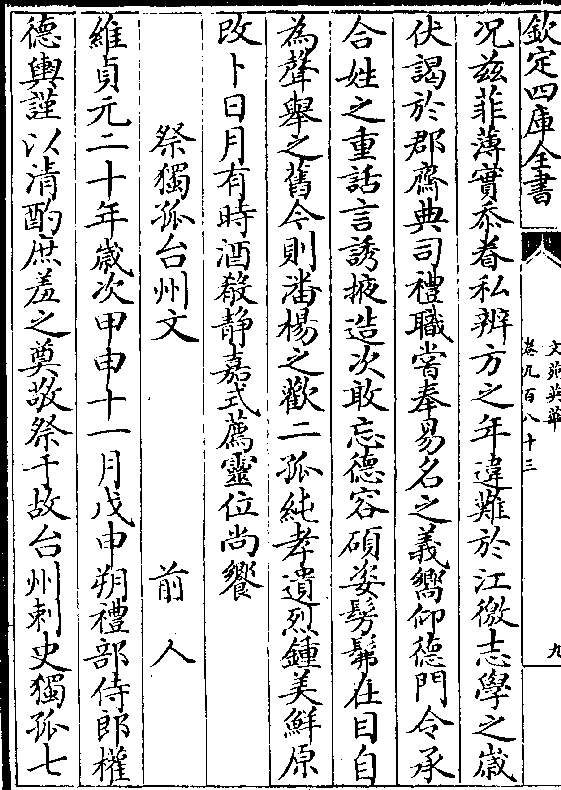 欽定四庫全書
文苑英華
卷九百八十三
九
况兹菲薄實忝眷私辨方之年違難於江徼志學之歳
伏謁於郡齋典司禮職當奉易名之義嚮仰德門令承
合姓之重話言誘掖造次敢忘德容碩姿髣髴在目自
為聲舉之舊今則潘楊之歡二孤純孝遺烈鍾美鮮原
改卜日月有時酒殽静嘉式薦靈位尚饗
祭獨孤台州文 前人
維貞元二十年歳次甲申十一月戊申朔禮部侍郎權
德輿謹以清酌庶羞之奠敬祭于故台州刺史獨孤七